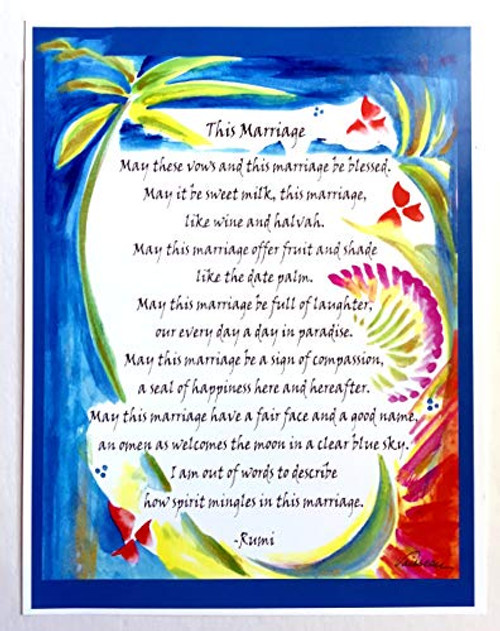 This Marriage
May these vows and this marriage be blessed.
May it be sweet milk, this marriage,
like wine and halvah.
May this marriage offer fruit and shade
like the date palm.
May this marriage be full of laughter,
our every day a day in paradise.
May this marriage be a sign of compassion,
a seal of happiness here and hereafter.
May this marriage have a fair face and a good name,
an omen as welcomes the moon in a clear blue sky.
I am out of words to describe
how spirit mingles in this marriage.
-Rumi